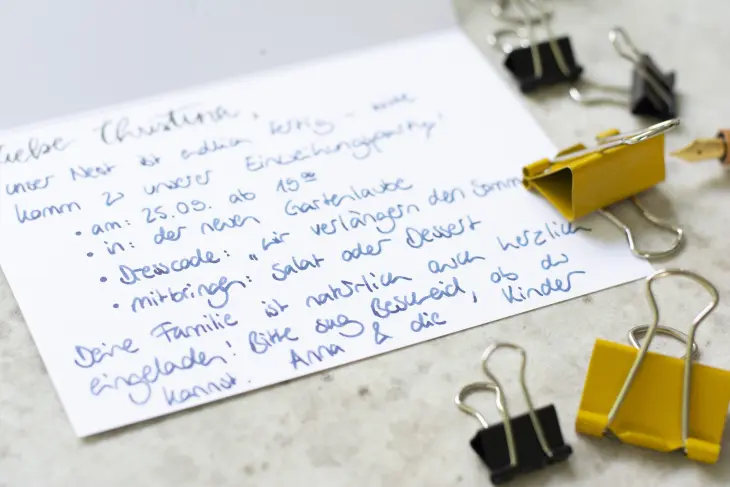 Liebe Christina,
unser Nest ist endlich fertig – bitte
komm zu unserer Einweihungsparty!
• am: 25.09. ab 19⁰⁰
• in: der neuen Gartenlaube
• Dresscode: "wir verlängern den Somm
• mitbringen: Salat oder Dessert
Deine Familie ist natürlich auch herzlich
eingeladen! Bitte sag Bescheid, ob du
kannst. Anna & die Kinder